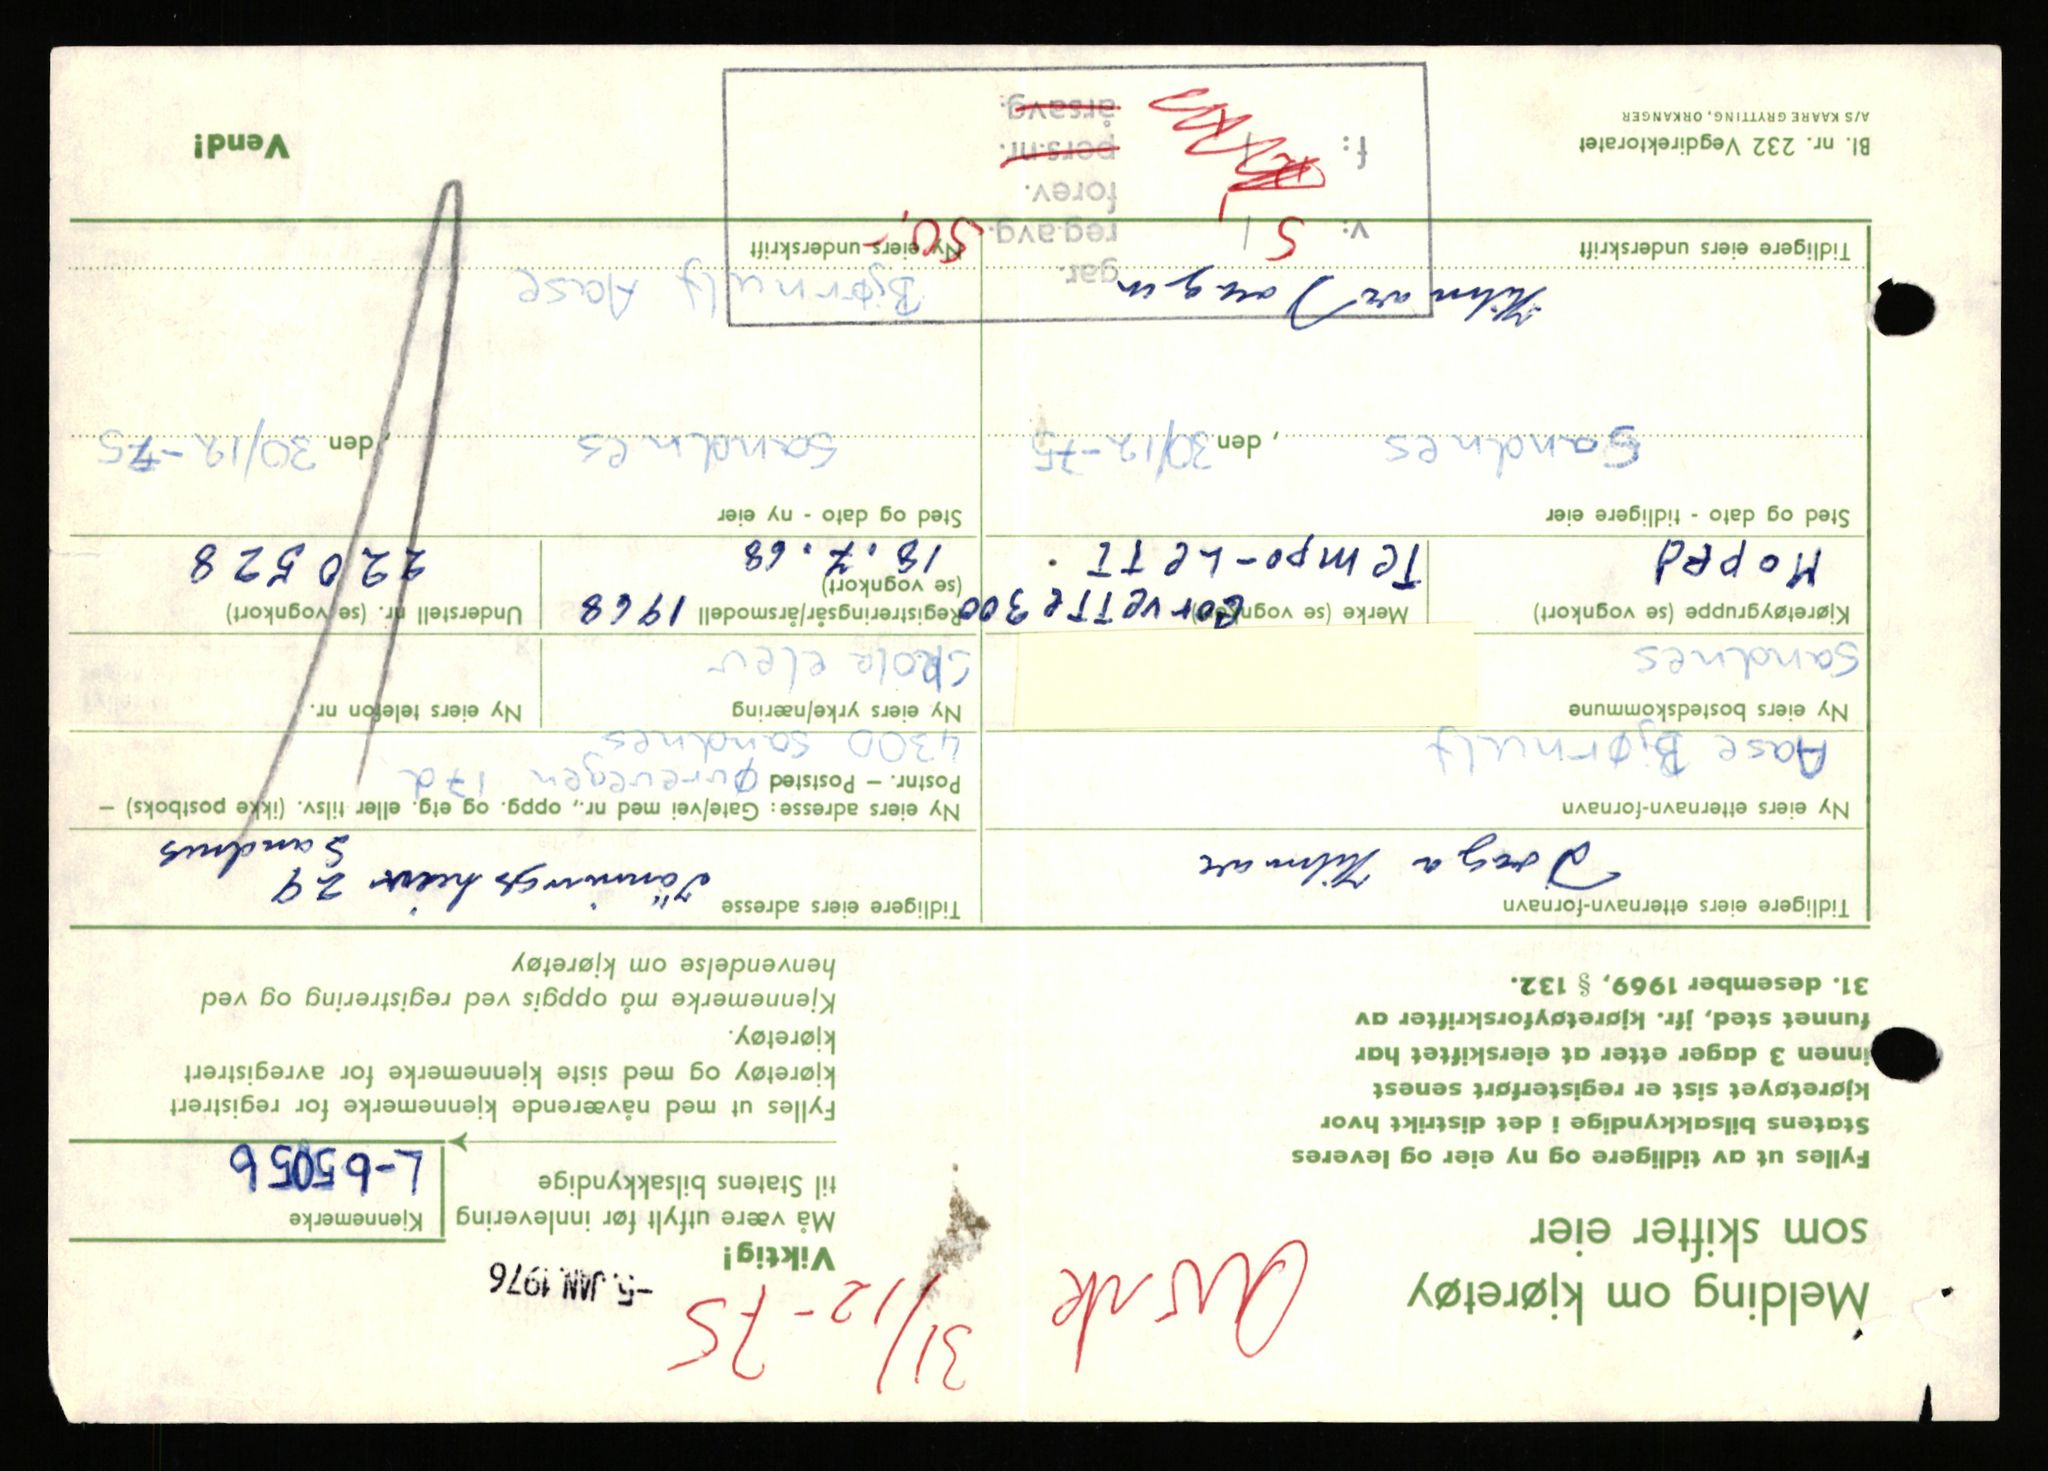 Melding om kjøretøy
som skifter eier
Fylles ut av tidligere og ny eier og leveres
Statens bilsakkyndige i det distrikt hvor
kjøretøyet sist er registerført senest
innen 3 dager etter at eierskiftet har
funnet sted, jfr. kjøretøyforskrifter av
31. desember 1969, § 132.
31/12-75
-5. JAN. 1976
Viktig!
Må være utfylt før innlevering
til Statens bilsakkyndige
Kjennemerke
L-65056
Fylles ut med nåværende kjennemerke for registrert
kjøretøy og med siste kjennemerke for avregistrert
kjøretøy.
Kjennemerke må oppgis ved registrering og ved
henvendelse om kjøretøy
Tidligere eiers etternavn-fornavn
Hilmar
Tidligere eiers adresse
29
Sandnes
Ny eiers etternavn-fornavn
Aase Bjørnulf
Ny eiers adresse: Gate/vei med nr., oppg. og etg. eller tilsv. (ikke postboks) –
Postnr. – Poststed Øvrevegen 17d
4300 Sandnes
Ny eiers bostedskommune
Sandnes
Ny eiers yrke/næring
Skole elev
Ny eiers telefon nr.
Kjøretøygruppe (se vognkort)
Moped
Merke (se vognkort)
Corvette 300
Tempo-Lett
Registreringsår/årsmodell 1968
(se vognkort)
18.7.68
Understell nr. (se vognkort)
220528
Sted og dato - tidligere eier
Sandnes, den 30/12-75
Sted og dato - ny eier
Sandnes, den 30/12-75
Hilmar
Tidligere eiers underskrift
Bjørnulf Aase
Ny eiers underskrift
gar.
v: 51 reg.avg. 50,-
forev.
f: pers.nr.
årsavg.
Bl. nr. 232 Vegdirektoratet
A/S KAARE GRYTTING, ORKANGER
Vend!